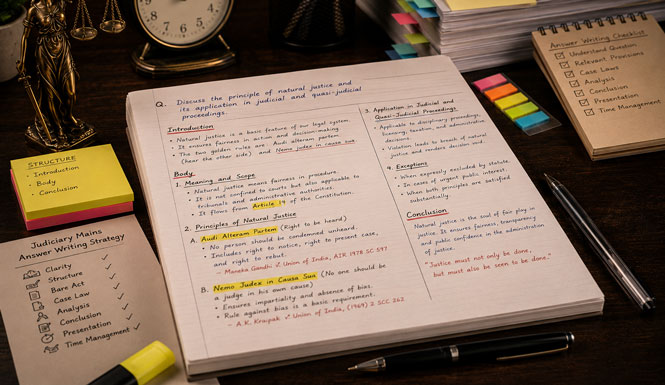 Q. Discuss the principle of natural justice and
its application in judicial and quasi-judicial
proceedings.
Introduction
• Natural justice is a basic feature of our legal system.
• It ensures fairness in action and decision-making.
• The two golden rules are Audi alteram partem
(hear the other side) and Nemo judex in causa sua
Body
1. Meaning and Scope
• Natural justice means fairness in procedure.
• It is not confined to courts but also applicable to
tribunals and administrative authorities.
• It flows from Article of the Constitution.
2. Principles of Natural Justice
A. Audi Alteram Partem (Right to be heard)
• No person should be condemned unheard.
• Includes right to notice, right to present case,
and right to rebut.
- Maneka Gandhi v. Union of India, AIR 1978 SC 597
B. Nemo Judex in Causa Sua (No one should be
a judge in his own cause)
• Ensures impartiality and absence of bias.
• Rule against bias is a basic requirement.
- A.K. Kraipak v. Union of India, (1969) 2 SCC 262
3. Application in Judicial and
Quasi-Judicial Proceedings
• Applicable to disciplinary proceedings,
licensing, taxation, and administrative
decisions.
• Violation leads to breach of natural
justice and renders decision void.
4. Exceptions
• When expressly excluded by statute.
• In cases of urgent public interest.
• When both principles are satisfied
substantially.
Conclusion
Natural justice is the soul of fair play in
justice. It ensures fairness, transparency
and public confidence in the administration
of justice.
"Justice must not only be done,
but must also be seen to be done."
STRUCTURE
• Introduction
• Body
• Conclusion
Judiciary Mains
Answer Writing Strategy
Clarity ✓
Structure ✓
Bare Act ✓
Case Law ✓
Analysis ✓
Conclusion ✓
Presentation ✓
Time Management ✓
Answer Writing Checklist
☑ Understand Question
☑ Relevant Provisions
☑ Case Laws
☑ Analysis
☑ Conclusion
☑ Presentation
☑ Time Management